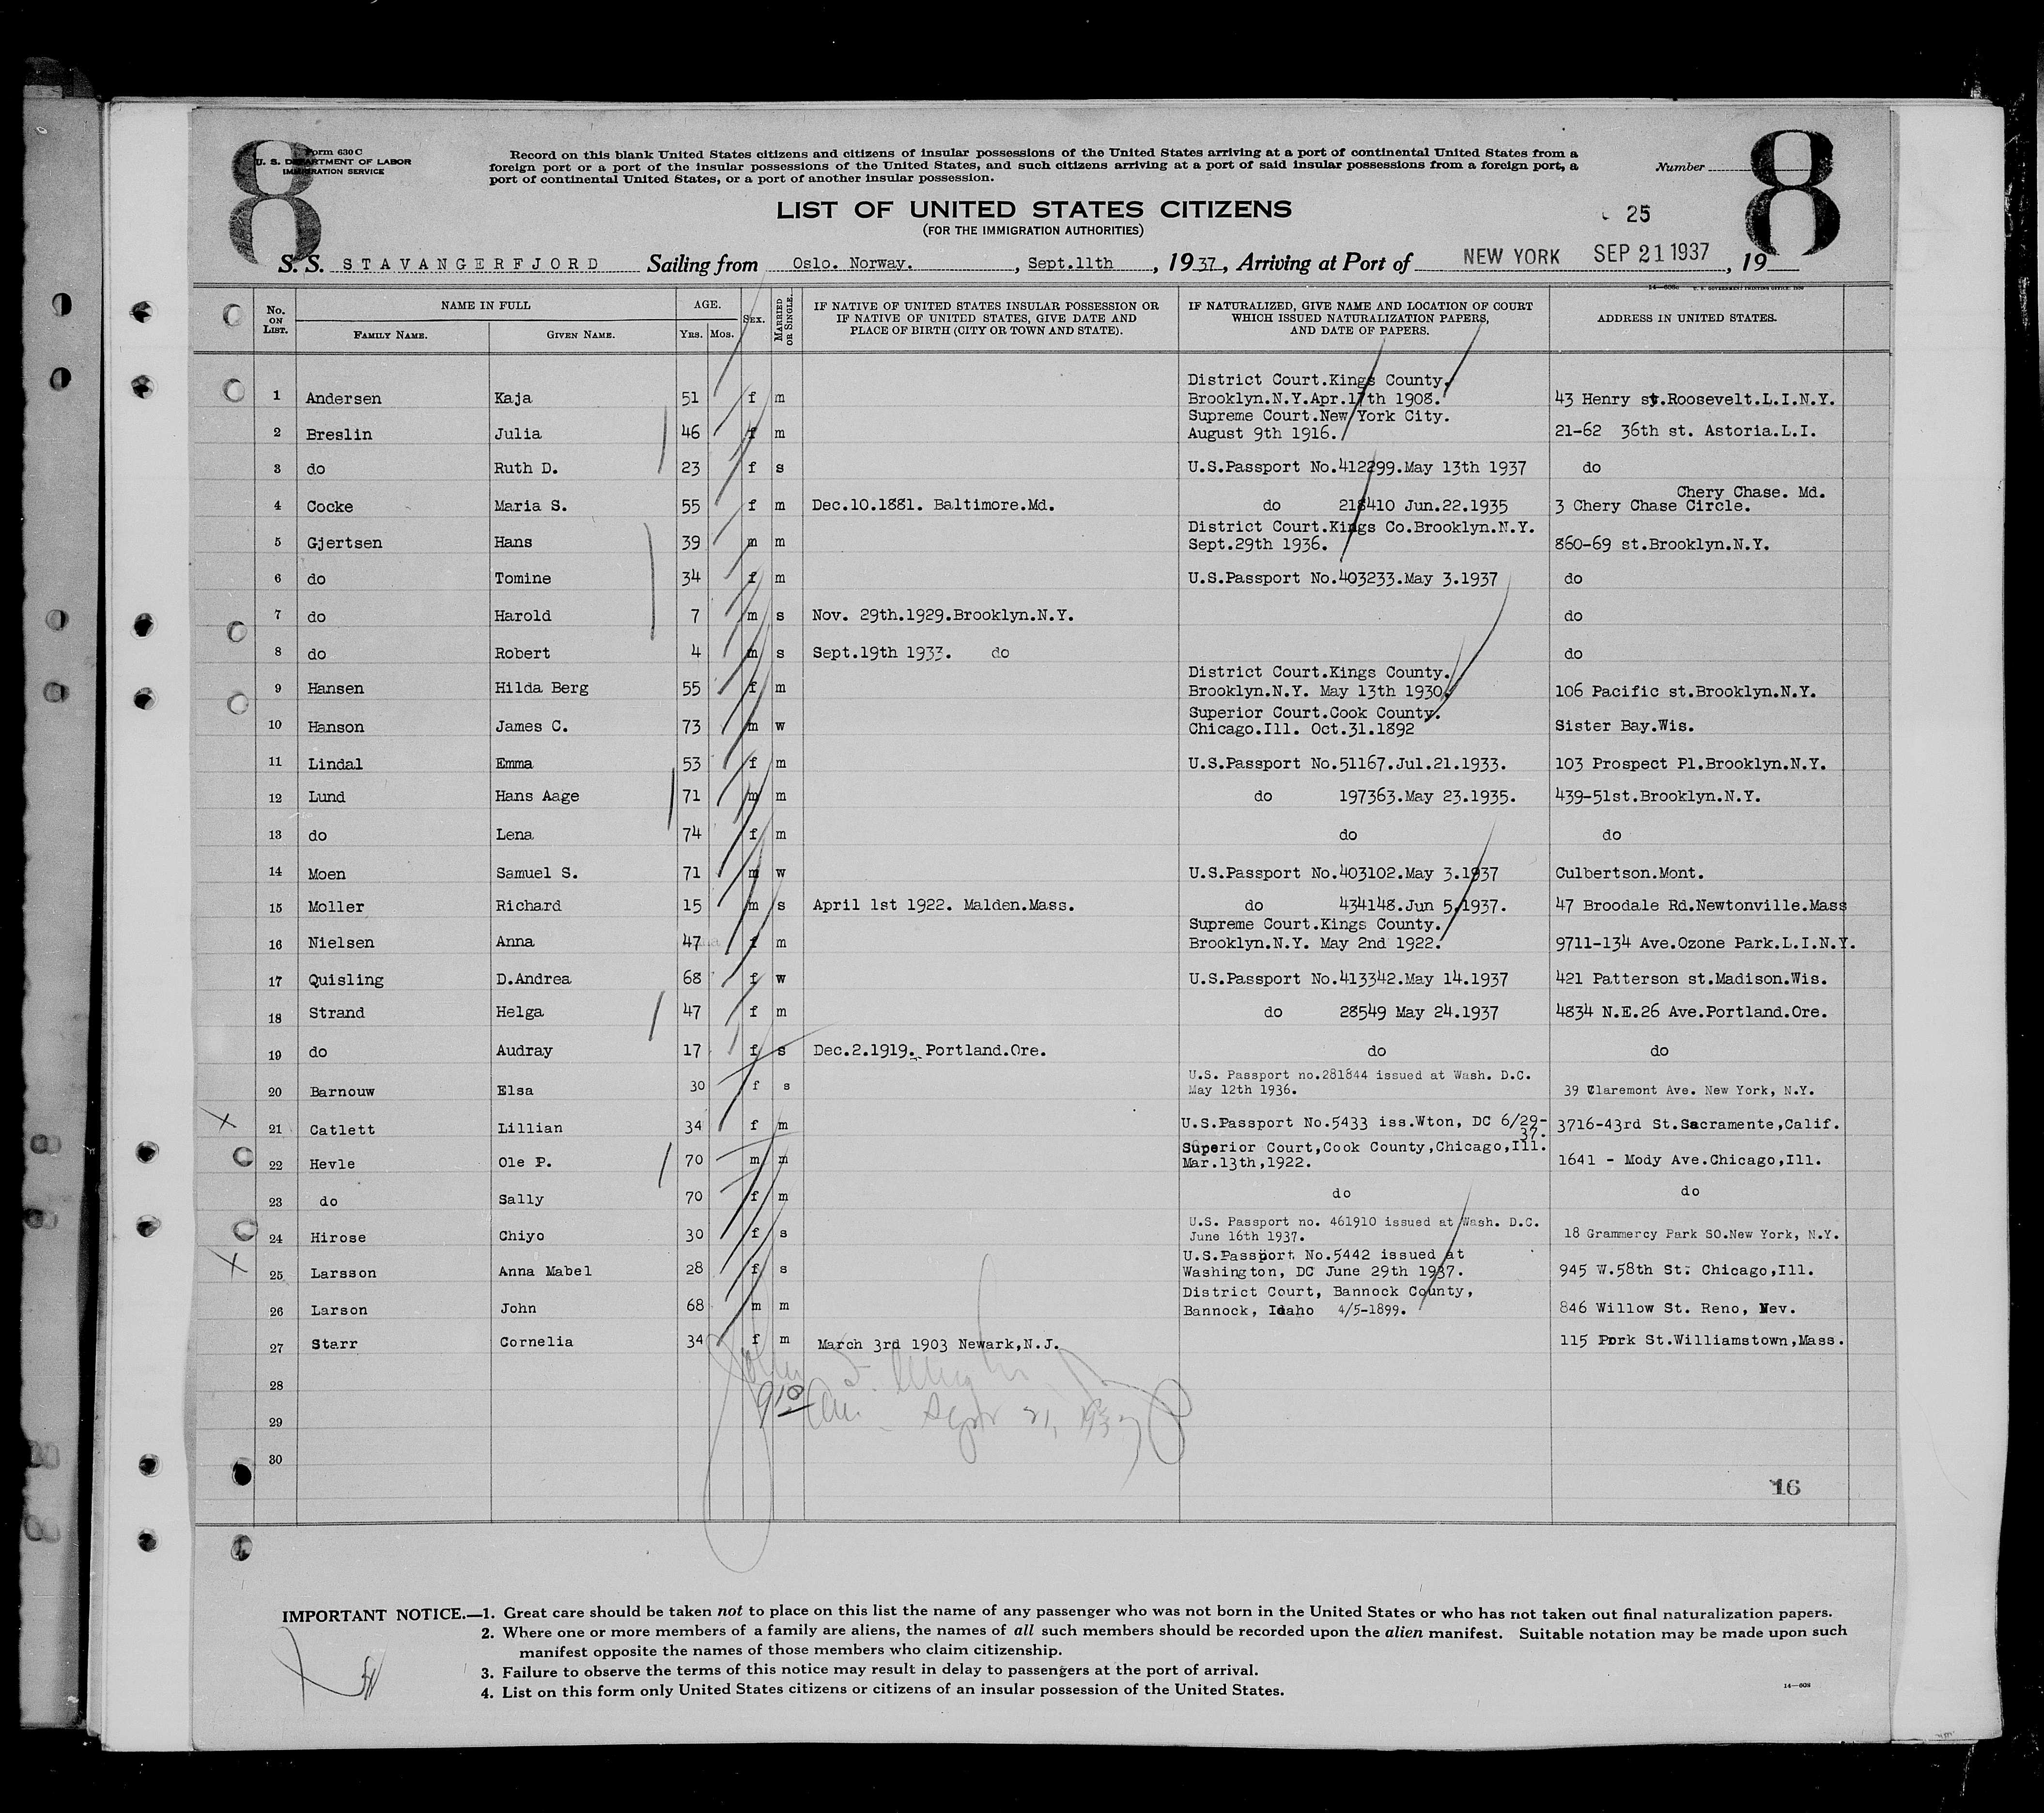 8
Form 630 C
U. S. DEPARTMENT OF LABOR
IMMIGRATION SERVICE
Record on this blank United States citizens and citizens of insular possessions of the United States arriving at a port of continental United States from a
foreign port or a port of the insular possessions of the United States, and such citizens arriving at a port of said insular possessions from a foreign port, a
port of continental United States, or a port of another insular possession.
Number
8
LIST OF UNITED STATES CITIZENS
(FOR THE IMMIGRATION AUTHORITIES)
25
S. S. STAVANGERFJORD Sailing from Oslo. Norway. , Sept.11th , 1937, Arriving at Port of NEW YORK SEP 21 1937, 19
No. ON LIST. NAME IN FULL FAMILY NAME. GIVEN NAME. AGE. YRS. MOS. SEX. MARRIED OR SINGLE. IF NATIVE OF UNITED STATES INSULAR POSSESSION OR IF NATIVE OF UNITED STATES, GIVE DATE AND PLACE OF BIRTH (CITY OR TOWN AND STATE). IF NATURALIZED, GIVE NAME AND LOCATION OF COURT WHICH ISSUED NATURALIZATION PAPERS, AND DATE OF PAPERS. ADDRESS IN UNITED STATES.
1 Andersen Kaja 51 f m District Court.Kings County. Brooklyn.N.Y.Apr.17th 1908. 43 Henry st.Roosevelt.L.I.N.Y.
2 Breslin Julia 46 f m Supreme Court.New York City. August 9th 1916. 21-62 36th st. Astoria.L.I.
3 do Ruth D. 23 f s U.S.Passport No.412299.May 13th 1937 do
4 Cocke Maria S. 55 f m Dec.10.1881. Baltimore.Md. do 218410 Jun.22.1935 Chery Chase. Md. 3 Chery Chase Circle.
5 Gjertsen Hans 39 m m District Court.Kings Co.Brooklyn.N.Y. Sept.29th 1936. 860-69 st.Brooklyn.N.Y.
6 do Tomine 34 f m U.S.Passport No.403233.May 3.1937 do
7 do Harold 7 m s Nov. 29th.1929.Brooklyn.N.Y. do
8 do Robert 4 m s Sept.19th 1933. do do
9 Hansen Hilda Berg 55 f m District Court.Kings County. Brooklyn.N.Y. May 13th 1930. 106 Pacific st.Brooklyn.N.Y.
10 Hanson James C. 73 m w Superior Court.Cook County. Chicago.Ill. Oct.31.1892 Sister Bay.Wis.
11 Lindal Emma 53 f m U.S.Passport No.51167.Jul.21.1933. 103 Prospect Pl.Brooklyn.N.Y.
12 Lund Hans Aage 71 m m do 197363.May 23.1935. 439-51st.Brooklyn.N.Y.
13 do Lena 74 f m do do
14 Moen Samuel S. 71 m w U.S.Passport No.403102.May 3.1937 Culbertson.Mont.
15 Moller Richard 15 m s April 1st 1922. Malden.Mass. do 434148.Jun 5.1937. 47 Broodale Rd.Newtonville.Mass
16 Nielsen Anna 47 f m Supreme Court.Kings County. Brooklyn.N.Y. May 2nd 1922. 9711-134 Ave.Ozone Park.L.I.N.Y.
17 Quisling D.Andrea 68 f w U.S.Passport No.413342.May 14.1937 421 Patterson st.Madison.Wis.
18 Strand Helga 47 f m do 28549 May 24.1937 4834 N.E.26 Ave.Portland.Ore.
19 do Audray 17 f s Dec.2.1919. Portland.Ore. do do
20 Barnouw Elsa 30 f s U.S. Passport no.281844 issued at Wash. D.C. May 12th 1936. 39 Claremont Ave. New York, N.Y.
21 Catlett Lillian 34 f m U.S.Passport No.5433 iss.Wton, DC 6/29-37. 3716-43rd St.Sacramente,Calif.
22 Hevle Ole P. 70 m m Superior Court,Cook County,Chicago,Ill. Mar.13th,1922. 1641 - Mody Ave.Chicago,Ill.
23 do Sally 70 f m do do
24 Hirose Chiyo 30 f s U.S. Passport no. 461910 issued at Wash. D.C. June 16th 1937. 18 Grammercy Park SO.New York, N.Y.
25 Larsson Anna Mabel 28 f s U.S.Passport No.5442 issued at Washington, DC June 29th 1937. 945 W.58th St. Chicago,Ill.
26 Larson John 68 m m District Court, Bannock County, Bannock, Idaho 4/5-1899. 846 Willow St. Reno, Nev.
27 Starr Cornelia 34 f m March 3rd 1903 Newark,N.J. 115 Park St.Williamstown,Mass.
28
29 Sept 21, 1937
30
16
IMPORTANT NOTICE.—1. Great care should be taken not to place on this list the name of any passenger who was not born in the United States or who has not taken out final naturalization papers.
2. Where one or more members of a family are aliens, the names of all such members should be recorded upon the alien manifest. Suitable notation may be made upon such
manifest opposite the names of those members who claim citizenship.
3. Failure to observe the terms of this notice may result in delay to passengers at the port of arrival.
4. List on this form only United States citizens or citizens of an insular possession of the United States.
14—608